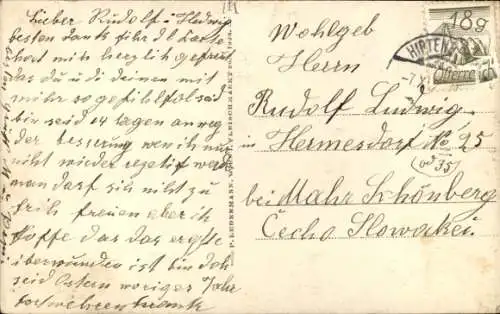 Lieber Rudolf u. Hedwig
besten Dank für die Karte
hat mich herzlich gefreut
das du u di deinen mit
mihr so gefihlfol seid
bin seid 14 tagen an weg
der besserung wen ich nur
niht wieder
man darf sich niht zu
frih freuen aber ih
hoffe das das ergste
überwunden ist bin doh
seid Ostern voriger Jahr
krank
P. LEDERMANN, WIEN I., FLEISCHMARKT
Wohlgeb
Herrn
Rudolf Ludwig
in Hermesdorf No 25
(od 35)
bei Mahr Schönberg
Čecho Slowakei
18 g
HIRTENBERG
Österreich